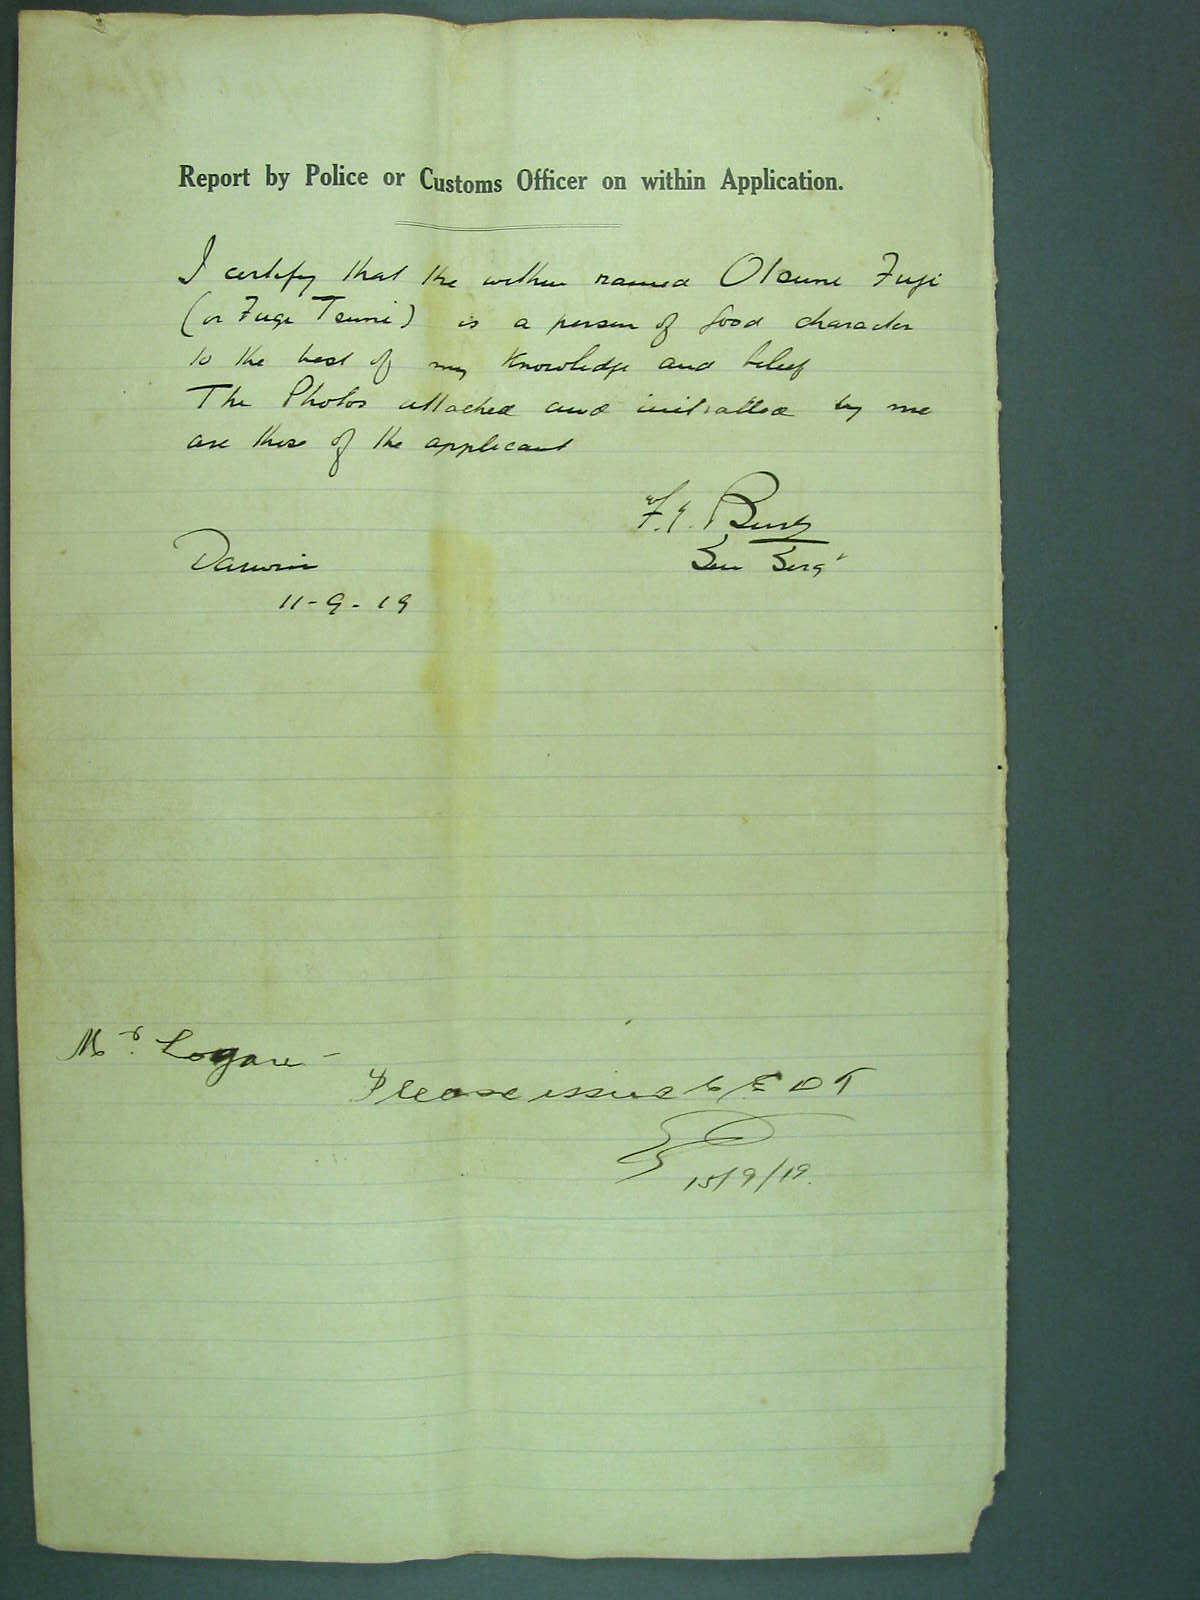 Report by Police or Customs Officer on within Application.
I certify that the within named Otsune Fugi
(or Fugi Tsune) is a person of good character
to the best of my knowledge and belief
The Photos attached and initialled by me
are those of the applicant
Sen Serg
Darwin
11-9-19
Mr. Logan
Please issue C E D T
15/9/19